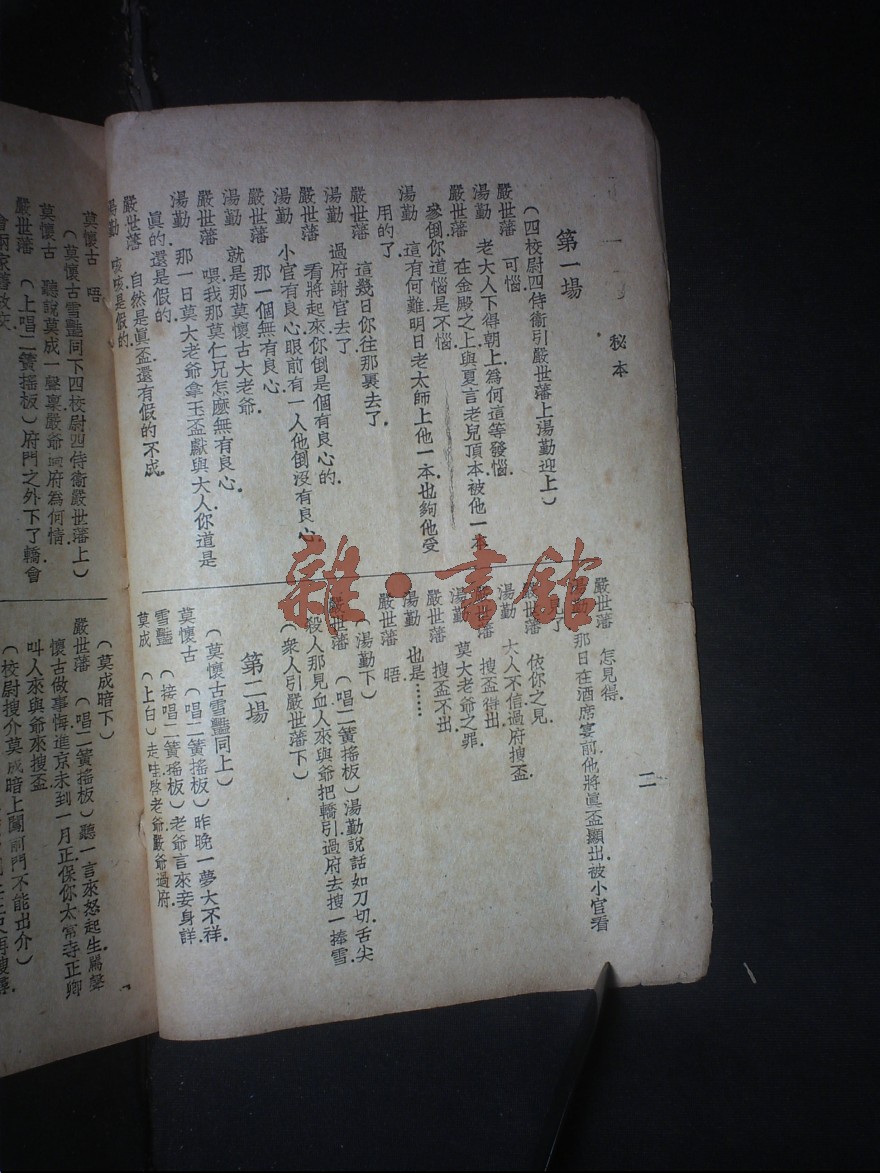 秘本
二
第一場
（四校尉四侍衛引嚴世藩上湯勤迎上）
嚴世藩　可惱.
湯勤　老大人下得朝上為何這等發惱.
嚴世藩　在金殿之上與夏言老兒頂本.被他一本
參倒你道惱是不惱.
湯勤　這有何難明日老太師上他一本.也夠他受
用的了.
嚴世藩　這幾日你往那裏去了.
湯勤　過府謝官去了.
嚴世藩　看將起來你倒是個有良心的.
湯勤　小官有良心.眼前有一人他倒沒有良心.
嚴世藩　那一個無有良心.
湯勤　就是那莫懷古大老爺.
嚴世藩　喂.我那莫仁兄怎麼無有良心.
湯勤　那一日莫大老爺拿玉盃獻與大人.你道是
真的.還是假的.
嚴世藩　自然是真盃.還有假的不成.
湯勤　咳咳是假的.
嚴世藩　怎見得.
湯勤　那日在酒席宴前.他將真盃顯出.被小官看
見了.
嚴世藩　依你之見.
湯勤　大人不信過府搜盃.
嚴世藩　搜盃得出.
湯勤　莫大老爺之罪.
嚴世藩　搜盃不出.
湯勤　也是……
嚴世藩　唔.
（湯勤下）
嚴世藩　（唱二簧搖板）湯勤說話如刀切.舌尖
殺人那見血.人來與爺把轎引.過府去搜一捧雪.
（衆人引嚴世藩下）
第二場
（莫懷古雪豔同上）
莫懷古　（唱二簧搖板）昨晚一夢大不祥.
雪豔　（接唱二簧搖板）老爺言來妾身詳.
莫成　（上白）走哇.啓老爺.嚴爺過府.
莫懷古　唔
（莫懷古雪豔同下四校尉四侍衛嚴世藩上）
莫懷古　聽說莫成一聲稟.嚴爺過府為何情.
嚴世藩　（上唱二簧搖板）府門之外下了轎.會
（莫成暗下）
嚴世藩　（唱二簧搖板）聽一言來怒起生.罵聲
懷古做事悔.進京未到一月正.保你太常寺正卿
叫人來與爺來搜盃
（校尉搜介莫成暗上闖前門不能出介）